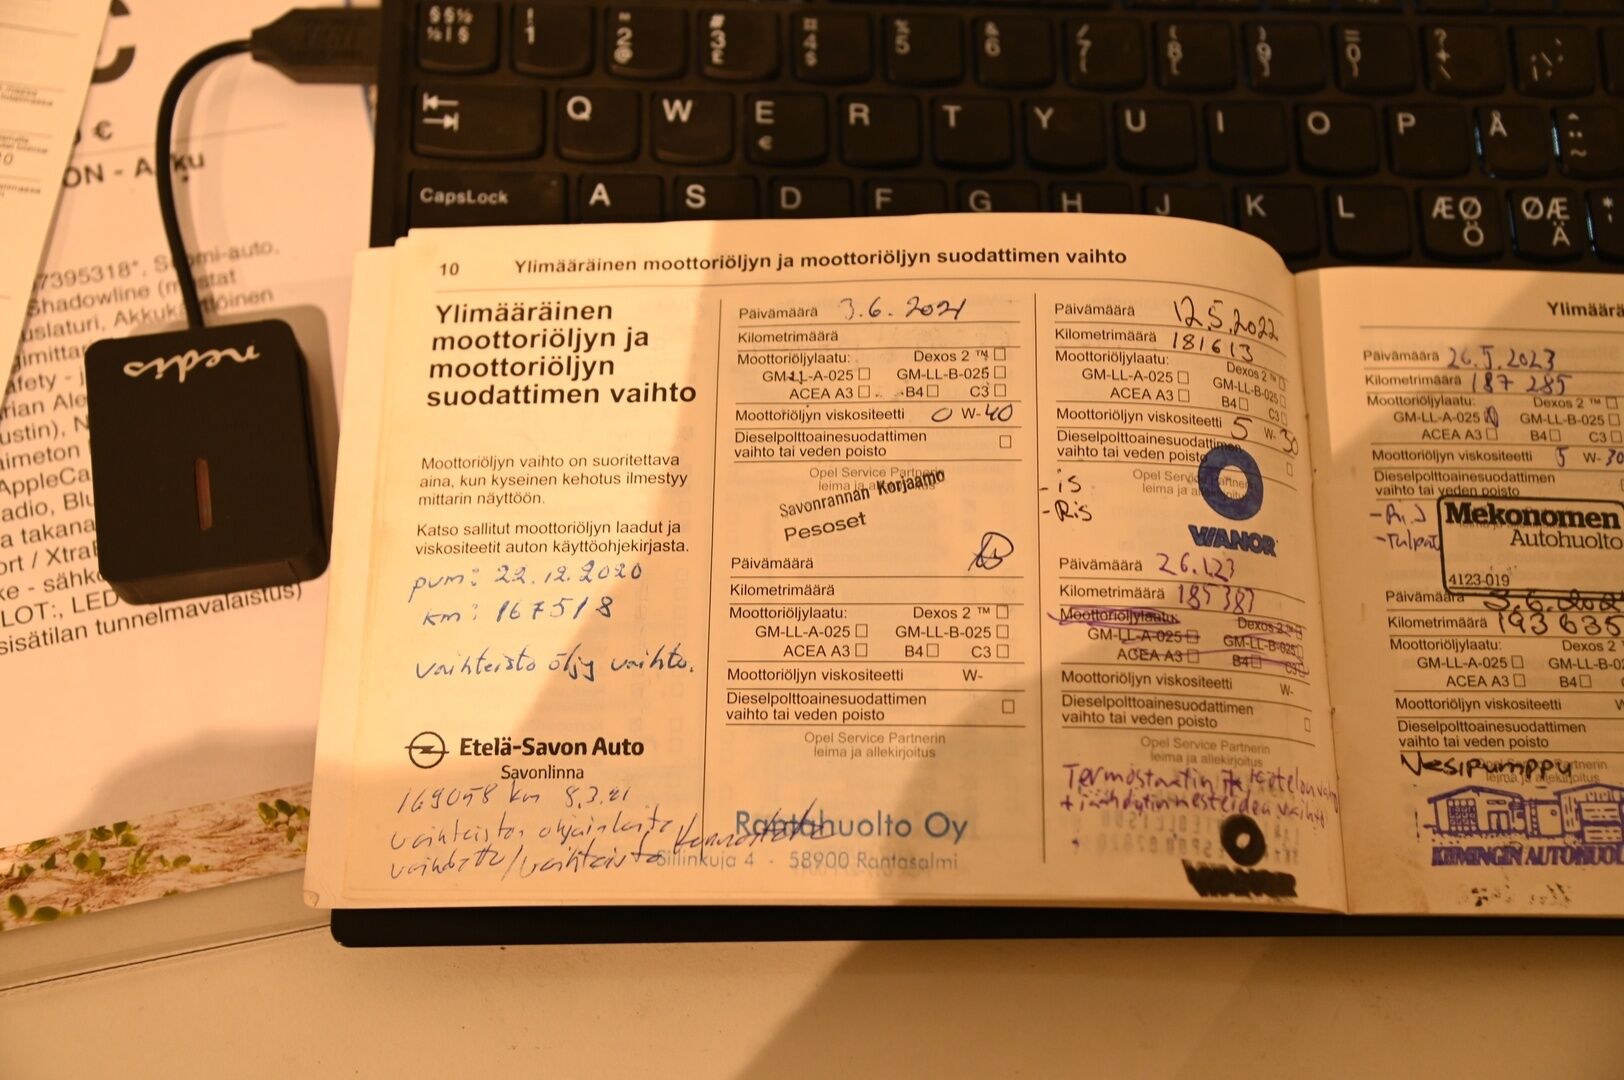 §
½
!
1
"
2
@
#
3
£
¤
4
$
%
5
&
6
/
7
{
(
8
[
)
9
]
=
0
}
?
+
\
Q
W
E
€
R
T
Y
U
I
O
P
Å
¨
^
~
CapsLock
A
S
D
F
G
H
J
K
L
ÆØ
Ö
ØÆ
Ä
€
ON - Akku
7395318*. Suomi-auto,
Shadowline (mustat
AppleCa
ort / Xtra
ke - sähkö
LOT:, LED
sisätilan tunnelmavalaistus)
nedis
10 Ylimääräinen moottoriöljyn ja moottoriöljyn suodattimen vaihto
Ylimääräinen
moottoriöljyn ja
moottoriöljyn
suodattimen vaihto
Moottoriöljyn vaihto on suoritettava
aina, kun kyseinen kehotus ilmestyy
mittarin näyttöön.
Katso sallitut moottoriöljyn laadut ja
viskositeetit auton käyttöohjekirjasta.
pvm: 22.12.2020
km: 167518
vaihteisto öljy vaihto.
Etelä-Savon Auto
Savonlinna
169058 km 8.3.21
Päivämäärä 3.6.2021
Kilometrimäärä
Moottoriöljylaatu: Dexos 2 ™ □
GM-LL-A-025 □ GM-LL-B-025 □
ACEA A3 □ B4 □ C3 □
Moottoriöljyn viskositeetti 0 W-40
Dieselpolttoainesuodattimen □
vaihto tai veden poisto
Opel Service Partnerin
leima ja allekirjoitus
Savonrannan Korjaamo
Pesoset
Päivämäärä
Kilometrimäärä
Moottoriöljylaatu: Dexos 2 ™ □
GM-LL-A-025 □ GM-LL-B-025 □
ACEA A3 □ B4 □ C3 □
Moottoriöljyn viskositeetti W-
Dieselpolttoainesuodattimen □
vaihto tai veden poisto
Opel Service Partnerin
leima ja allekirjoitus
Rantahuolto Oy
Sillinkuja 4 - 58900 Rantasalmi
Päivämäärä 12.5.2022
Kilometrimäärä 181613
Moottoriöljylaatu: Dexos 2 ™ □
GM-LL-A-025 □ GM-LL-B-025 □
ACEA A3 □ B4 □ C3 □
Moottoriöljyn viskositeetti 5 W-30
Dieselpolttoainesuodattimen □
vaihto tai veden poisto
Opel Service Partnerin
leima ja allekirjoitus
- is
- Ris
WANOR
Päivämäärä 26.1.23
Kilometrimäärä 185383
Moottoriöljylaatu: Dexos 2 ™ □
GM-LL-A-025 □ GM-LL-B-025 □
ACEA A3 □ B4 □ C3 □
Moottoriöljyn viskositeetti W-
Dieselpolttoainesuodattimen □
vaihto tai veden poisto
Opel Service Partnerin
leima ja allekirjoitus
+ jäähdytinnesteiden vaihto
WANOR
Ylimäärä
Päivämäärä 26.5.2023
Kilometrimäärä 187 285
Moottoriöljylaatu: Dexos 2 ™ □
GM-LL-A-025 □ GM-LL-B-025 □
ACEA A3 □ B4 □
Moottoriöljyn viskositeetti 5 W-30
Dieselpolttoainesuodattimen
vaihto tai veden poisto
Mekonomen
Autohuolto
4123-019
Päivämäärä
Kilometrimäärä 193635
Moottoriöljylaatu: Dexos 2
GM-LL-A-025 □ GM-LL-B-02
ACEA A3 □ B4 □
Moottoriöljyn viskositeetti
Dieselpolttoainesuodattimen
vaihto tai veden poisto
Vesipumppu
KIIMINGIN AUTOHUOL